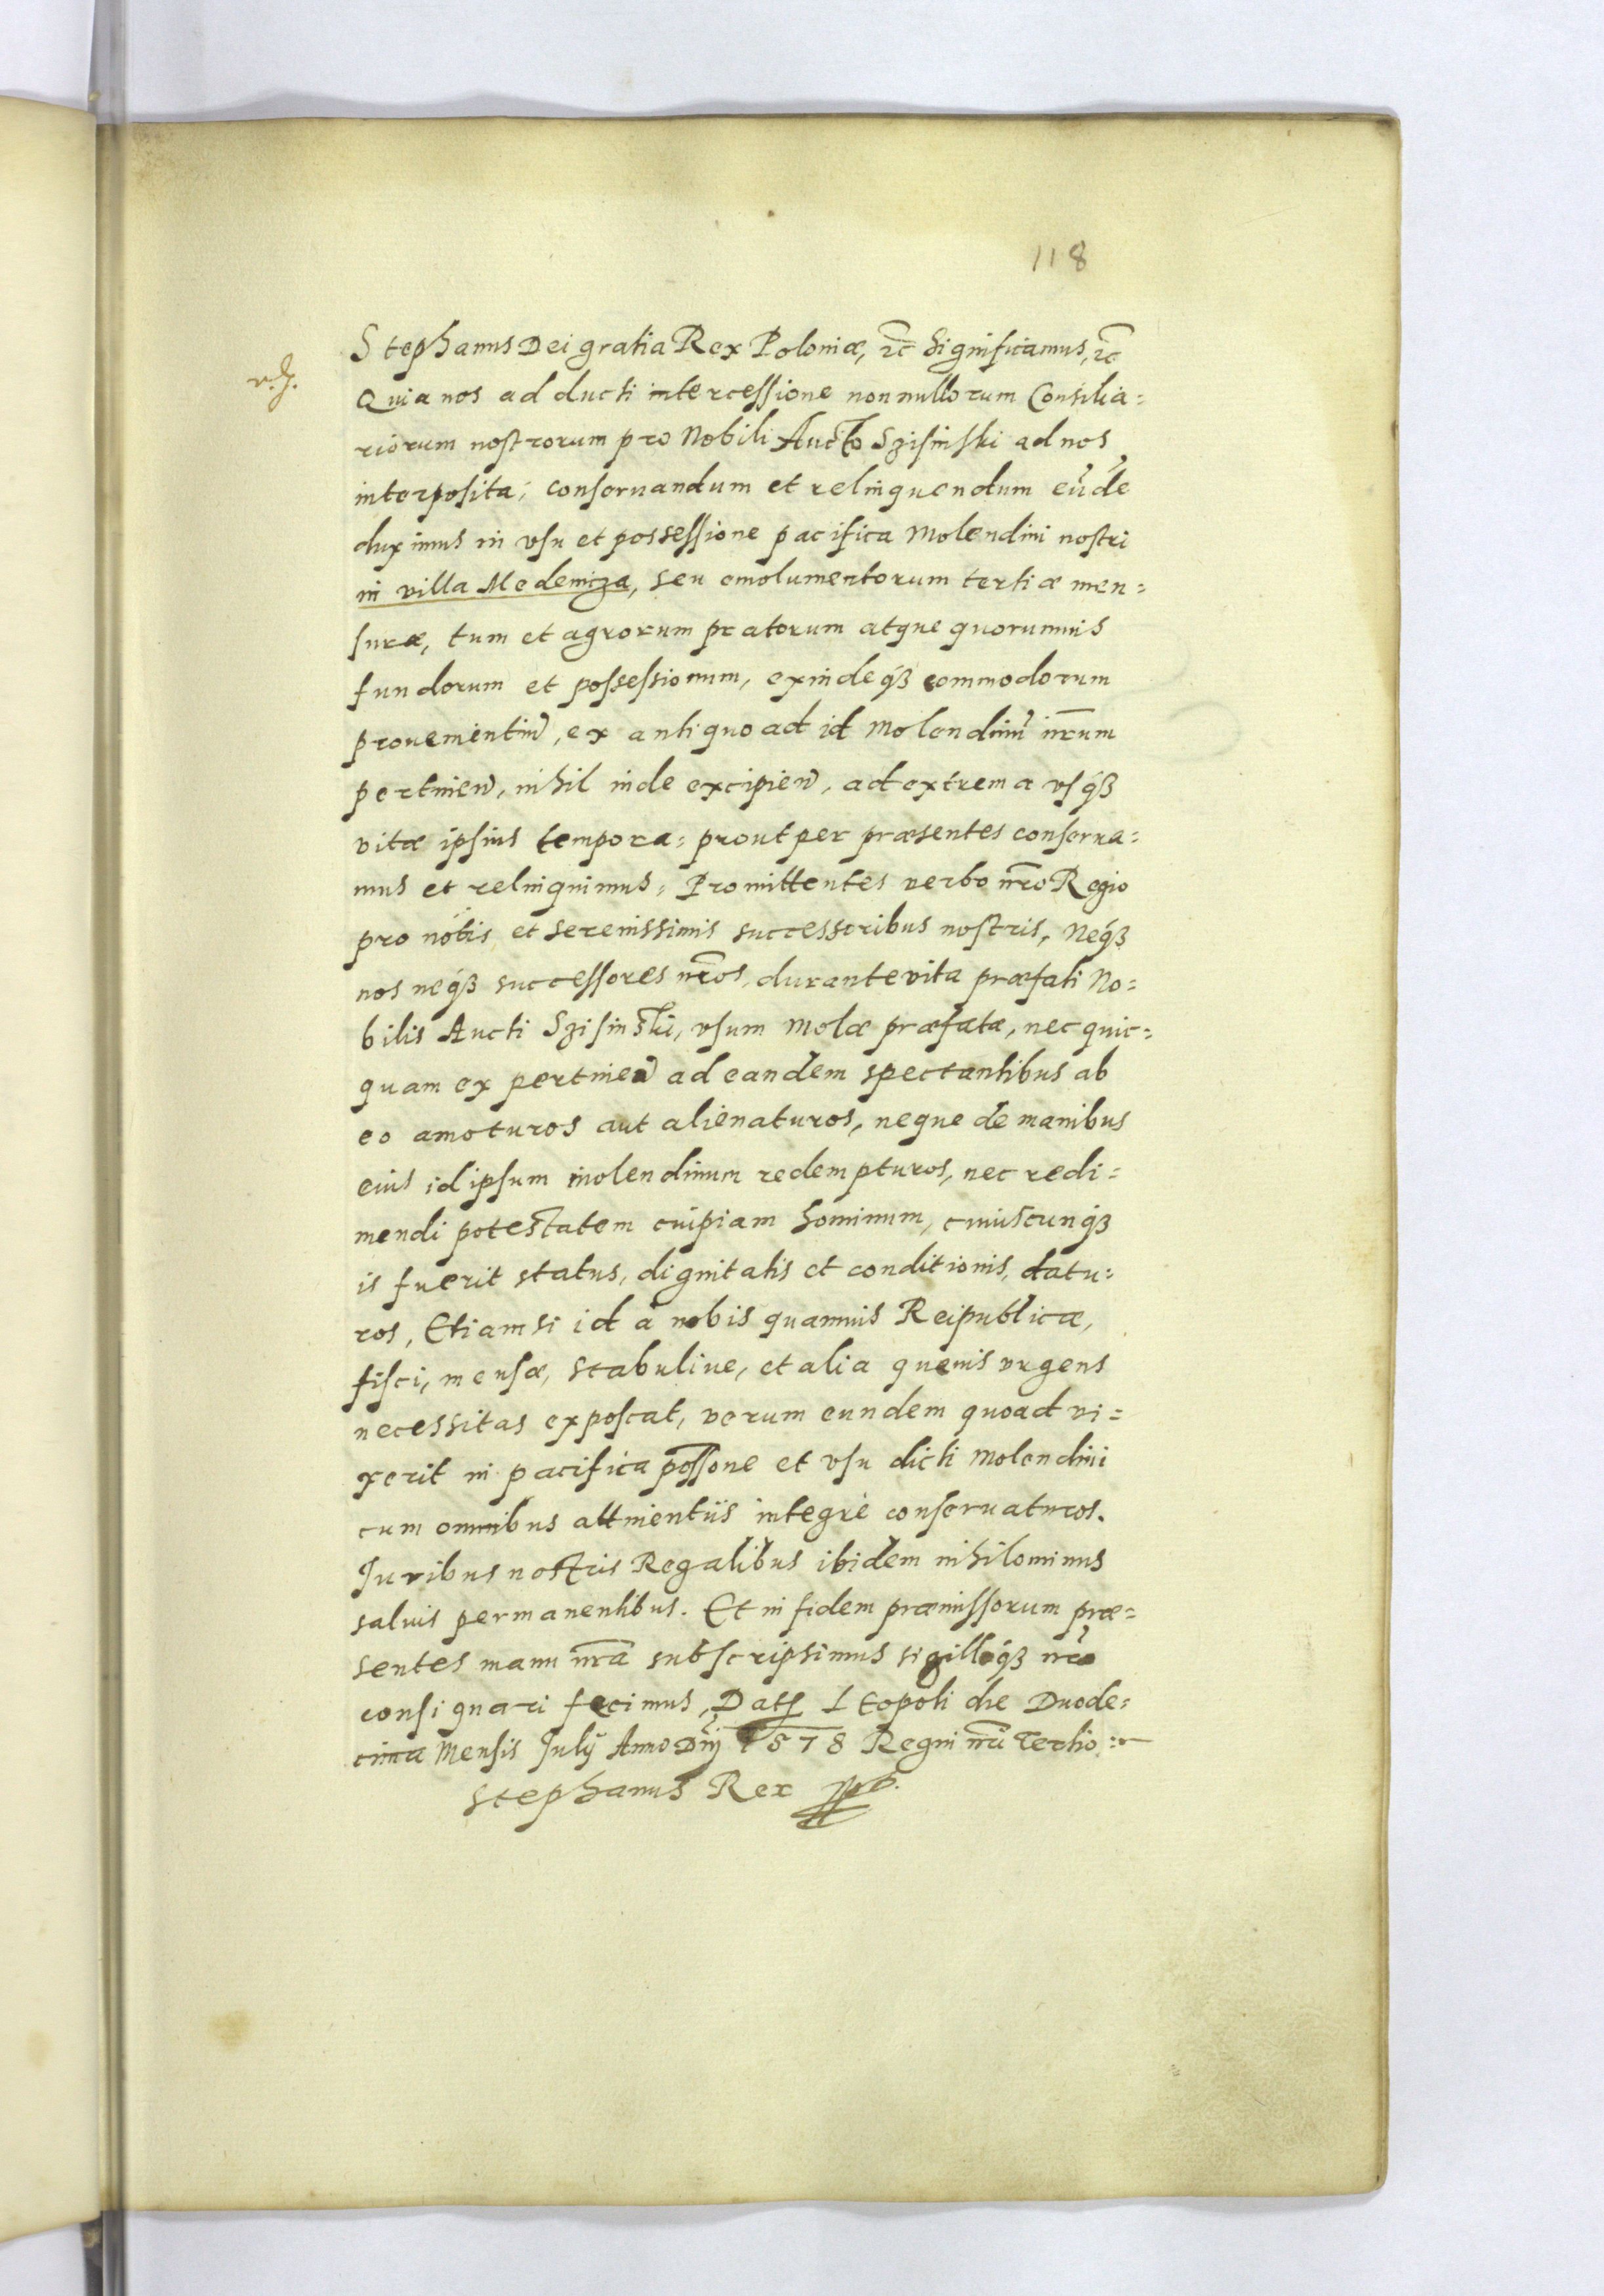 118
Stephanus Dei gratia Rex Poloniæ, etc̄ Significamus, etc̄
v. J.
Quia nos adducti intercessione nonnullorum Consilia=
riorum nostrorum pro Nobili Aucto Szisinski ad nos
interposita; conseruandum et relinquendum eũdẽ
duximus in vsu et possessione pacifica Molendini nostri
in villa Medenicza, seu emolumentorum tertiæ men=
suræ, tum et agrorum pratorum atque quorumuis
fundorum et possessionum, exindeq́ꝫ commodorum
prouenientiũ, ex antiquo ad id Molendinũ nr̄um
pertineñ, nihil inde excipieñ, ad extrema vsq́ꝫ
vitæ ipsius tempora: prout per præsentes conserua=
mus et relinquimus: Promittentes verbo nr̄o Regio
pro nobis et serenissimis successoribus nostris, Neq́ꝫ
nos neq́ꝫ successores nr̄os, durante vita præfati No=
bilis Aucti Szisinski, vsum Molæ præfatæ, nec quic=
quam ex pertineñ ad eandem spectantibus ab
eo amoturos aut alienaturos, neque de manibus
eius id ipsum molendinum redempturos, nec redi=
mendi potestatem cuipiam hominum, cuiuscunq́ꝫ
is fuerit status, dignitatis et conditionis, datu=
ros, Etiamsi id à nobis quamuis Reipublicæ,
fisci, mensæ, stabuliue, et alia queuis vrgens
necessitas exposcat, verum eundem quoad vi=
xerit in pacifica poss̄one et vsu dicti Molendini
cum omnibus attinentijs integrè conseruaturos.
Juribus nostris Regalibus ibidem nihilominus
saluis permanentibus. Et in fidem præmissorum præ=
sentes manu nr̄a subscripsimus sigilloq́ꝫ nr̄o
consignari fecimus, Datꝭ Leopoli die Duode=
cima Mensis July Anno Dn̄j 1578 Regni nr̄i Tertio:~
Stephanus Rex